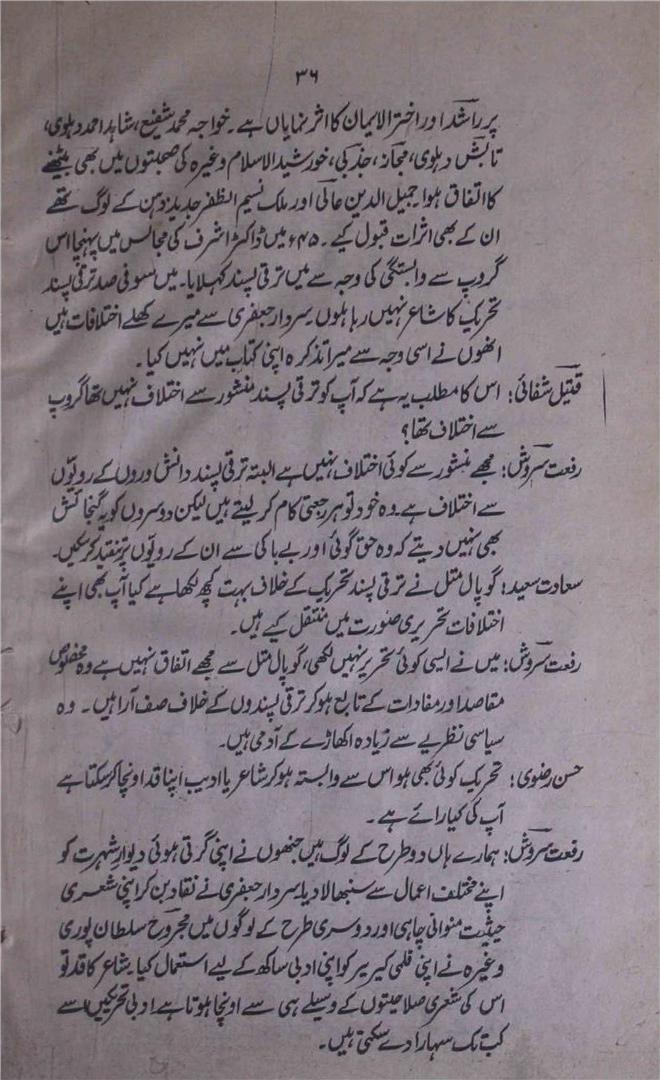 ۳۶
پر راشد اور اختر الایمان کا اثر نمایاں ہے۔ خواجہ محمد شفیع، شاہد احمد دہلوی،
تابش دہلوی، مجاز، جذبی، خورشید الاسلام وغیرہ کی صحبتوں میں بھی بیٹھنے
کا اتفاق ہوا۔ جمیل الدین عالی اور ملک نسیم الظفر جدید ذہن کے لوگ تھے
ان کے بھی اثرات قبول کیے۔ ۴۵ء میں ڈاکٹر اشرف کی مجالس میں پہنچا اس
گروپ سے وابستگی کی وجہ سے میں ترقی پسند کہلایا۔ میں سو فی صد ترقی پسند
تحریک کا شاعر نہیں رہا ہوں۔ سردار جعفری سے میرے کھلے اختلافات ہیں
انھوں نے اسی وجہ سے میرا تذکرہ اپنی کتاب میں نہیں کیا۔
قتیل شفائی: اس کا مطلب یہ ہے کہ آپ کو ترقی پسند منشور سے اختلاف نہیں تھا گروپ
سے اختلاف تھا؟
رفعت سروش: مجھے منشور سے کوئی اختلاف نہیں ہے البتہ ترقی پسند دانش وروں کے رویّوں
سے اختلاف ہے۔ وہ خود تو ہر رجعتی کام کر لیتے ہیں لیکن دوسروں کو یہ گنجائش
بھی نہیں دیتے کہ وہ حق گوئی اور بے باکی سے ان کے رویّوں پر تنقید کر سکیں۔
سعادت سعید: گوپال متل نے ترقی پسند تحریک کے خلاف بہت کچھ لکھا ہے کیا آپ بھی اپنے
اختلافات تحریری صورت میں منتقل کیے ہیں۔
رفعت سروش: میں نے ایسی کوئی تحریر نہیں لکھی، گوپال متل سے مجھے اتفاق نہیں ہے وہ مخصوص
مقاصد اور مفادات کے تابع ہو کر ترقی پسندوں کے خلاف صف آرا ہیں۔ وہ
سیاسی نظریے سے زیادہ اکھاڑے کے آدمی ہیں۔
حسن رضوی: تحریک کوئی بھی ہو اس سے وابستہ ہو کر شاعر یا ادیب اپنا قد اونچا کر سکتا ہے
آپ کی کیا رائے ہے۔
رفعت سروش: ہمارے ہاں دو طرح کے لوگ ہیں جنھوں نے اپنی گرتی ہوئی دیوارِ شہرت کو
اپنے مختلف اعمال سے سنبھالا دیا۔ سردار جعفری نے نقاد بن کر اپنی شعری
حیثیت منوانی چاہی اور دوسری طرح کے لوگوں میں مجروح سلطان پوری
وغیرہ نے اپنی فلمی کیریر کو اپنی ادبی ساکھ کے لیے استعمال کیا۔ شاعر کا قد تو
اس کی شعری صلاحیتوں کے وسیلے ہی سے اونچا ہوتا ہے۔ ادبی تحریکیں اسے
کب تک سہارا دے سکتی ہیں۔